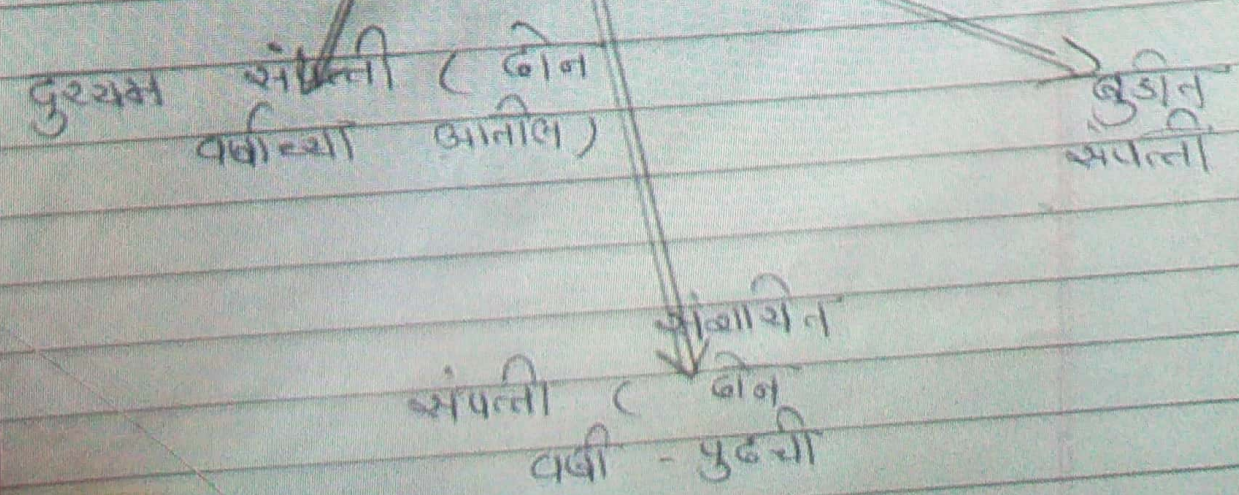 दुय्यम संपत्ती ( दोन
वर्षाच्या आतील )
बुडीत
संपत्ती
संशयित
संपत्ती ( दोन
वर्षा - पुढची